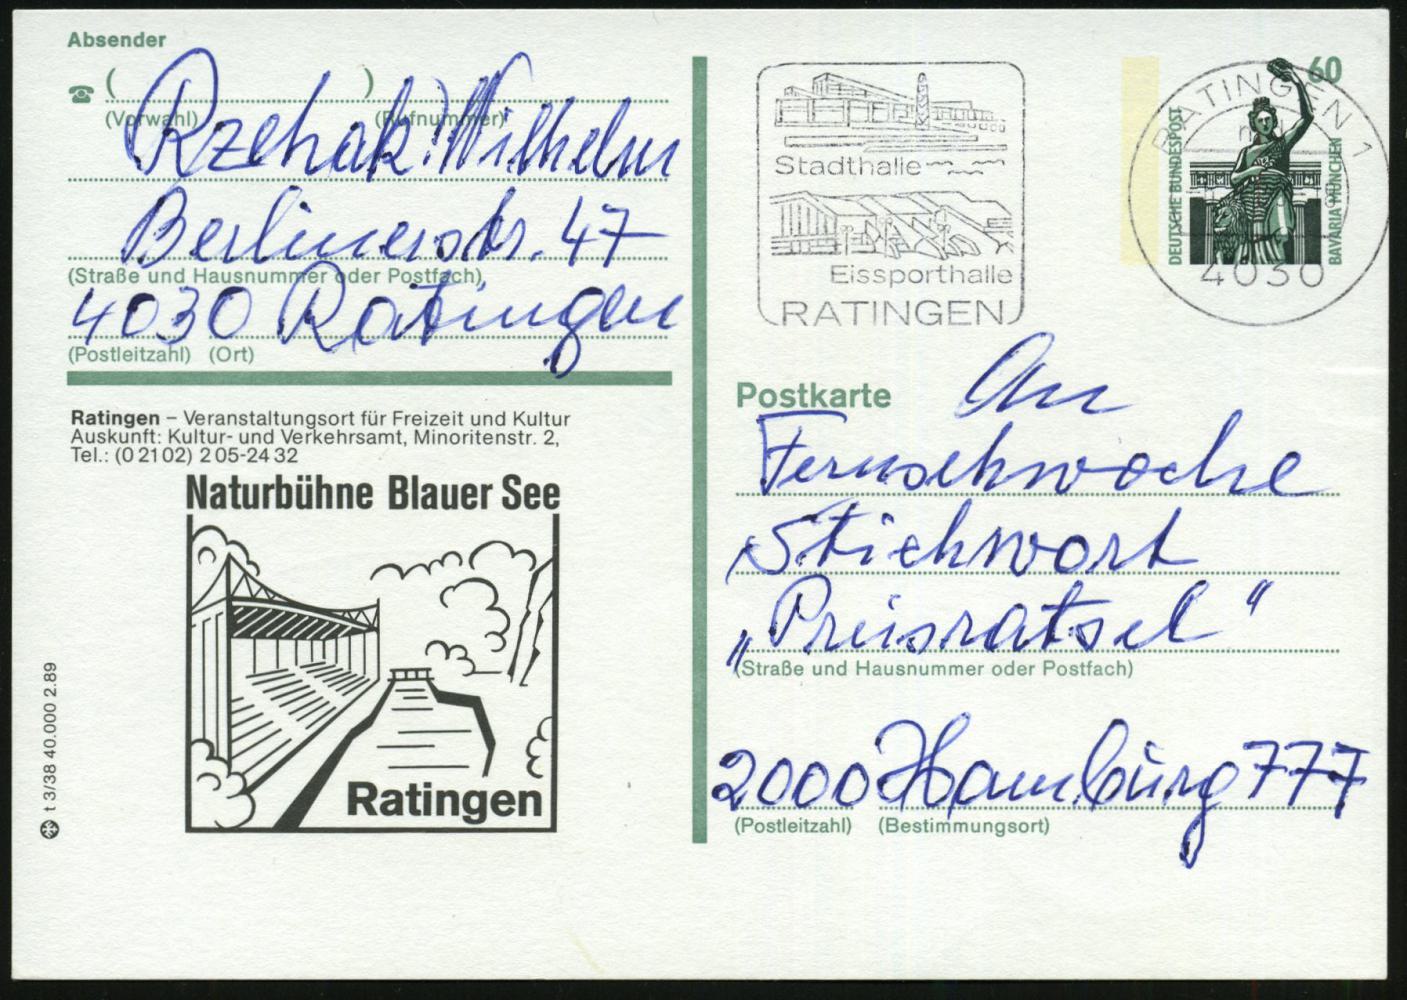 Absender
( )
(Vorwahl) (Rufnummer)
Rzehak Wilhelm
Berlinerstr. 47
(Straße und Hausnummer oder Postfach)
4030 Ratingen
(Postleitzahl) (Ort)
Ratingen – Veranstaltungsort für Freizeit und Kultur
Auskunft: Kultur- und Verkehrsamt, Minoritenstr. 2,
Tel.: (0 21 02) 2 05-24 32
Naturbühne Blauer See
Ratingen
t 3/38 40.000 2.89
Stadthalle
Eissporthalle
RATINGEN
60
DEUTSCHE BUNDESPOST
BAVARIA MÜNCHEN
RATINGEN 1
4030
Postkarte
An
Fernsehwoche
Stichwort
„Preisratsel“
(Straße und Hausnummer oder Postfach)
2000 Hamburg 777
(Postleitzahl) (Bestimmungsort)